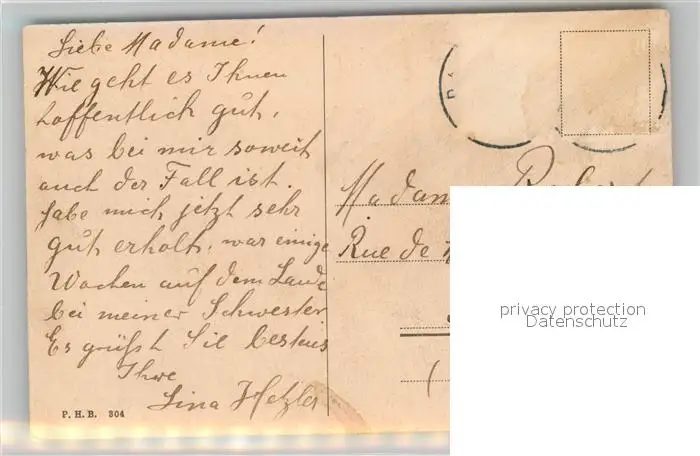 Liebe Madame!
Wie geht es Ihnen
hoffentlich gut,
was bei mir soweit
auch der Fall ist.
habe mich jetzt sehr
gut erholt, war einige
Wochen auf dem Lande
bei meiner Schwester
Es grüßt Sie bestens
Ihre
Lina
P. H. B. 304
Madam
Rue de
privacy protection
Datenschutz